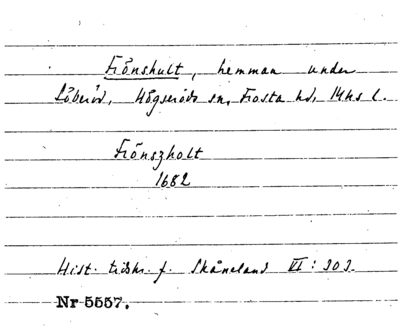 Frönshult, hemman under
Löberöd, Högseröds sn, Frosta hd, Mhs l.
Frönszholt
1682
Hist. tidskr. f. Skåneland VI: 303.
Nr 5557.